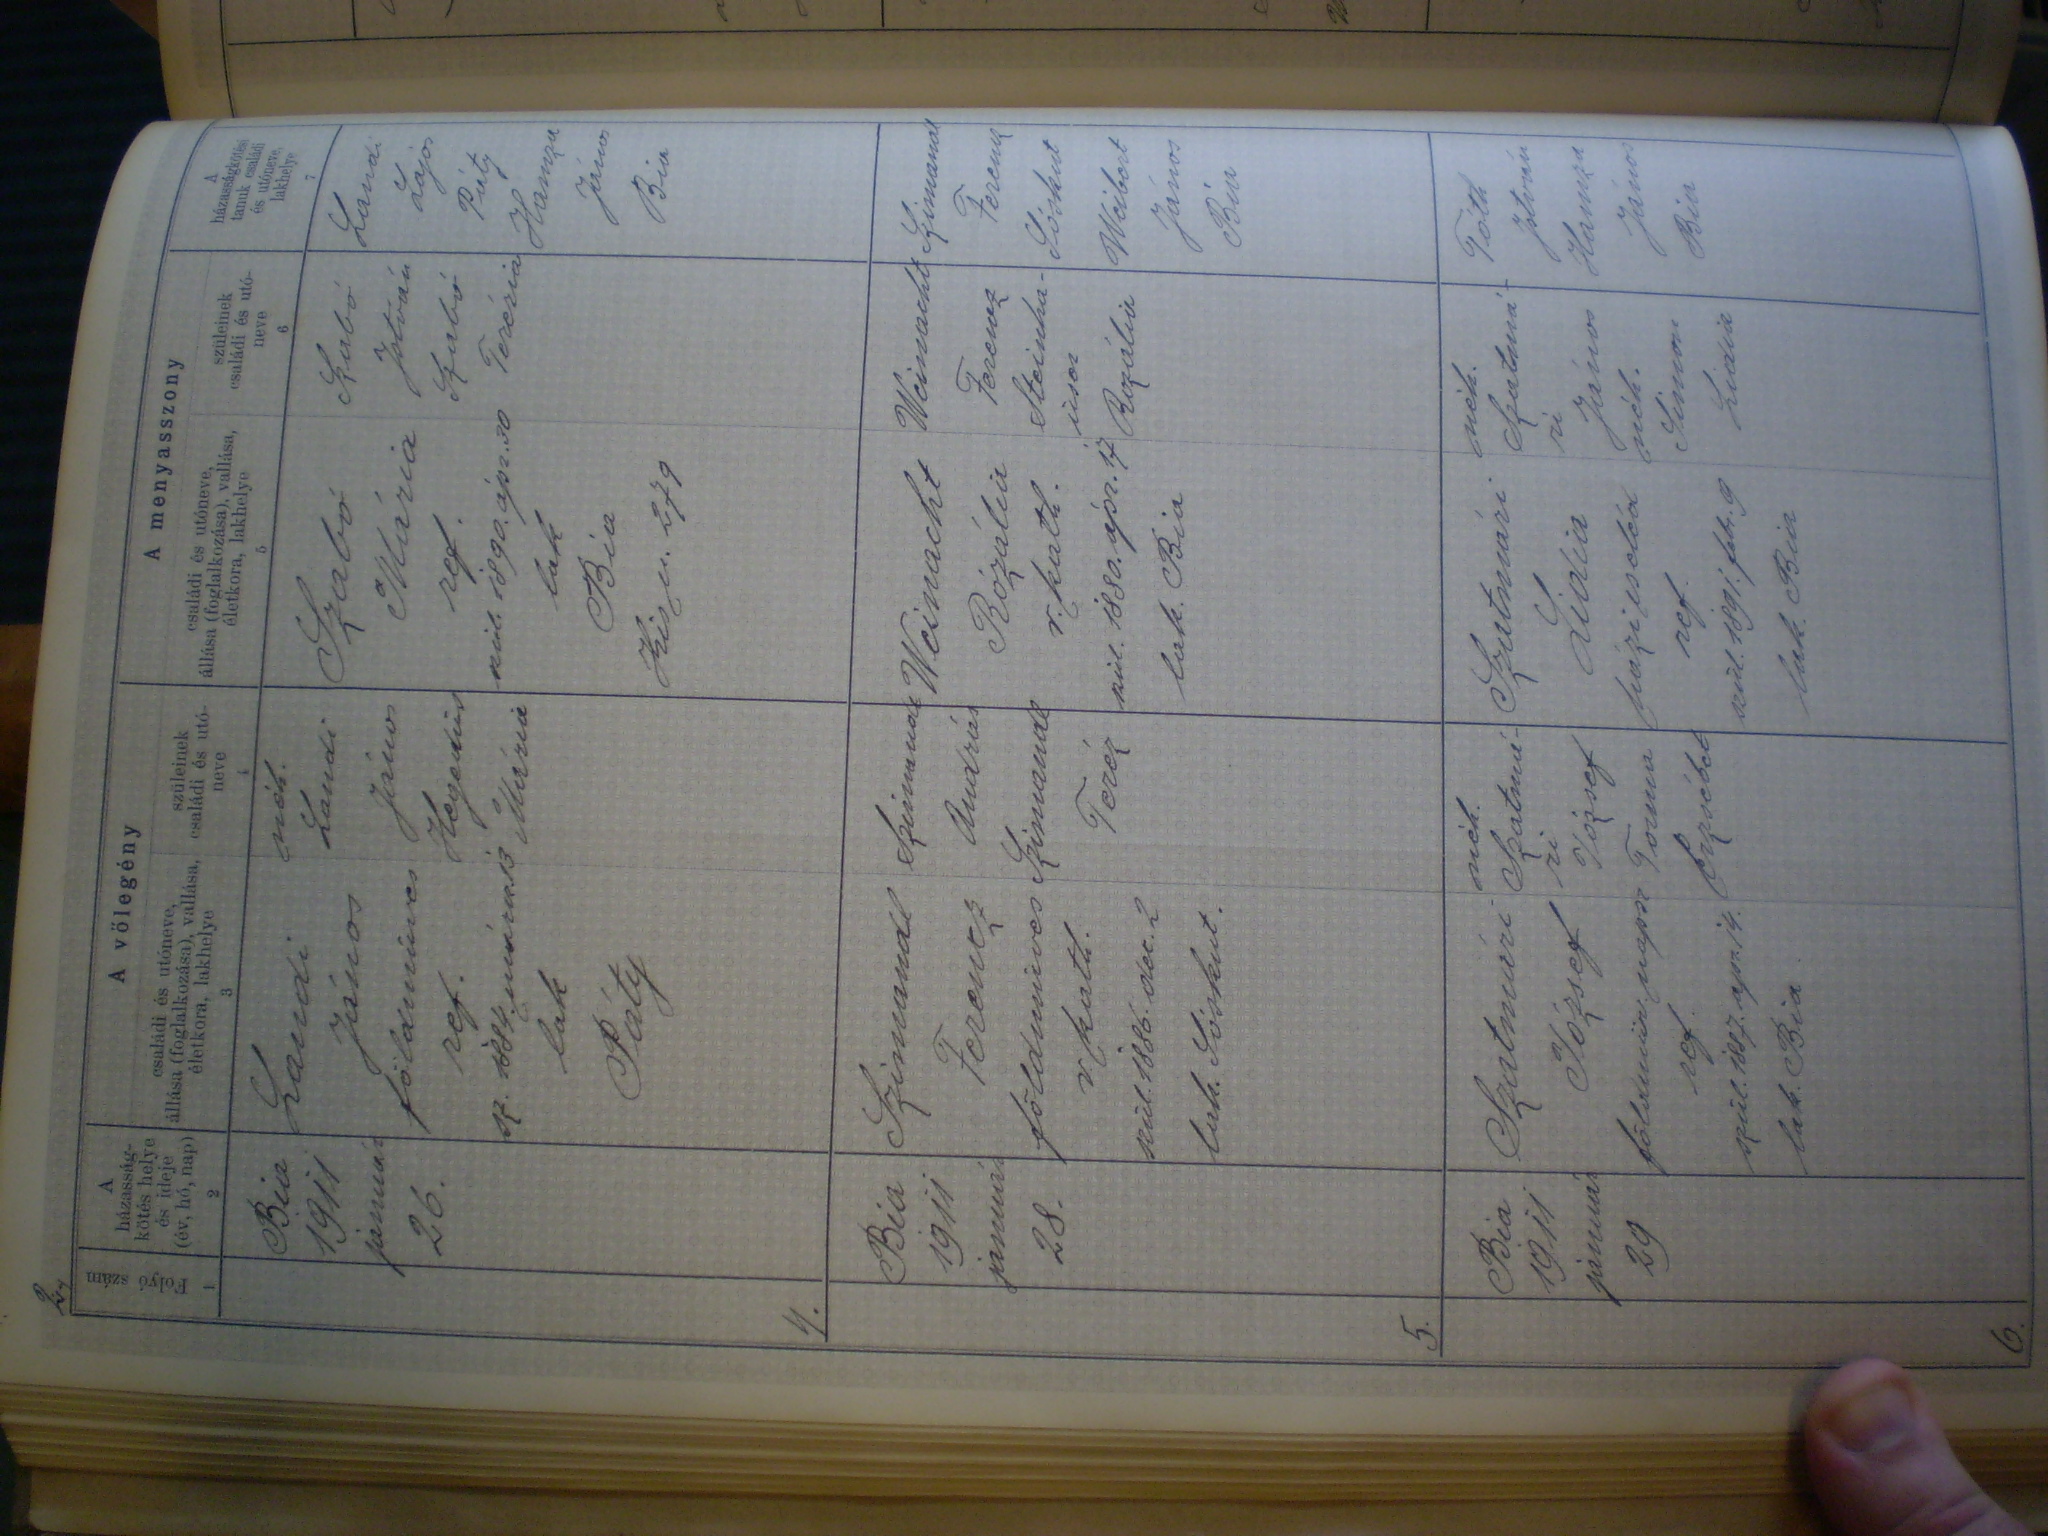 A
házasság-
kötés helye
és ideje
(év, hó, nap)
2
Folyó
szám
1
A vőlegény
családi és utóneve,
állása (foglalkozása), vallása,
életkora, lakhelye
3
szüleinek
családi és utó-
neve
4
A menyasszony
családi és utóneve,
állása (foglalkozása), vallása,
életkora, lakhelye
5
szüleinek
családi és utó-
neve
6
A
házasságkötési
tanuk családi
és utóneve,
lakhelye
7
4.
Bia
1911
január
26.
Landi
János
földmüves
ref.
sz. 1884. 13
lak
Páty
néh.
Landi
János
Hegedüs
Mária
Szabó
Mária
ref.
szül. 1890. ápr. 30
lak
Bia
Kis u. 279
Szabó
István
Szabó
Terézia
Landi
Lajos
Páty
Hamza
János
Bia
5.
Bia
1911
január
28.
Szimandl
Ferencz
földmives
r. kath.
szül. 1886. dec. 2
lak. Sóskut.
Szimandl
András
Szimandl
Teréz
Weinacht
Rozália
r. kath.
szül. 1880. ápr. 17
lak. Bia
Weinacht
Ferencz
Steinha-
user
Rozália
Szimandl
Ferencz
Sóskut
Weibert
János
Bia
6.
Bia
1911
január
29
Szatmári
József
ref.
szül. 1887. apr. 14.
lak. Bia.
néh.
Szatmá-
ri
József
Torma
Erzsébet
Szatmári
Lidia
ref.
szül. 1891. febr. 9
lak. Bia
néh.
Szatmá-
ri
János
néh.
Simon
Lidia
Tóth
István
Hamza
János
Bia